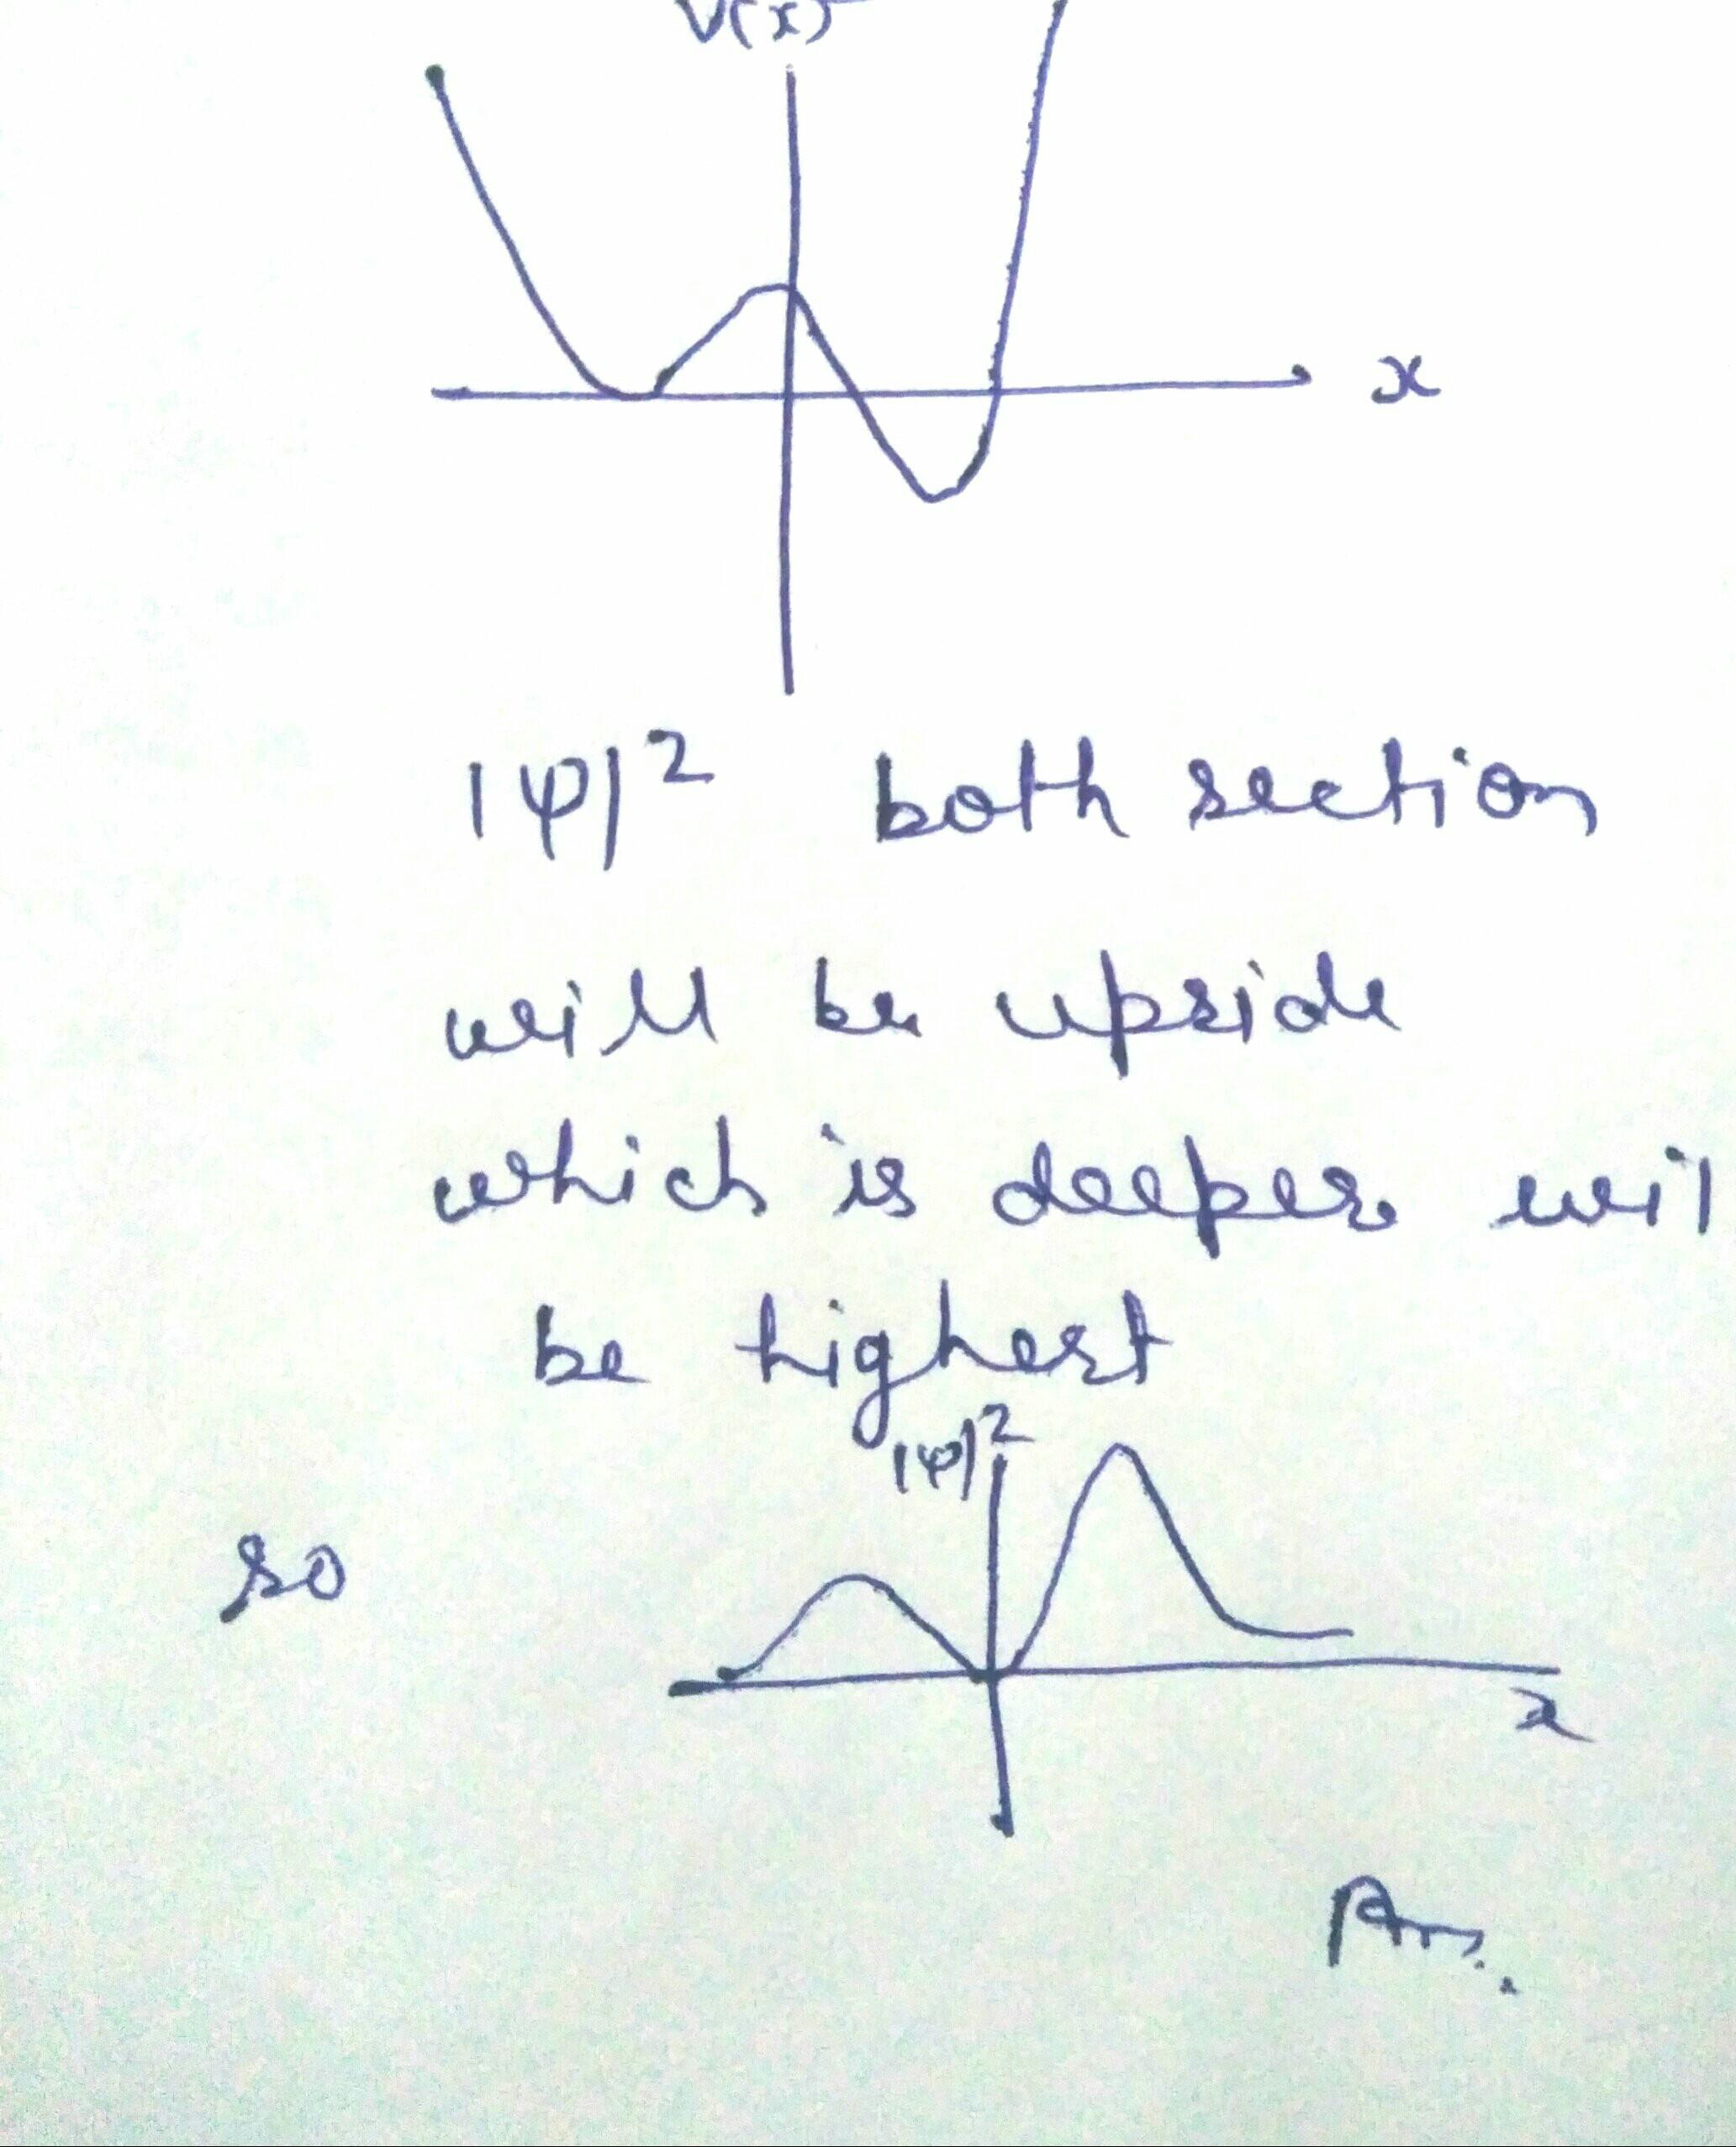 V(x)
x
|φ|² both section
will be upside
which is deeper wil
be highest
|φ|²
so
x
Ans.